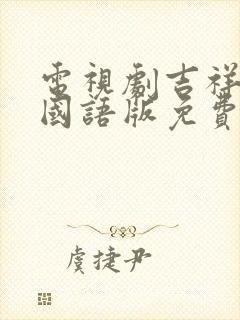 電視劇吉祥
國語版免費
虞捷尹